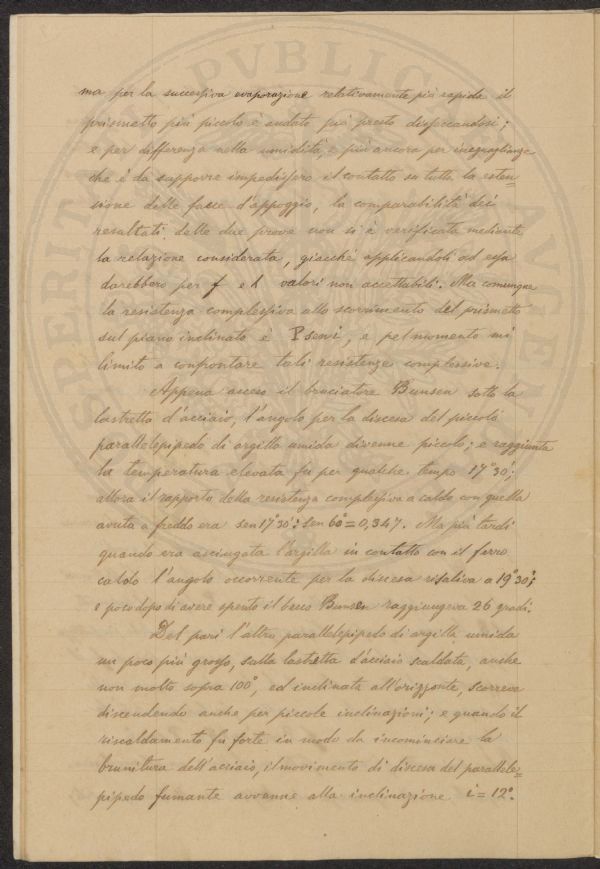 ma per la successiva evaporazione relativamente più rapida il
prismetto più piccolo è andato più presto disseccandosi;
e per differenza nella umidità, e più ancora per ineguaglianze
che è da supporre impedissero il contatto su tutta la esten-
sione delle facce d'appoggio, la comparabilità dei
resultati delle due prove non si è verificata mediante
la relazione considerata, giacchè applicandoli ad essa
darebbero per f e k valori non accettabili. Ma comunque
la resistenza complessiva allo scorrimento del prismetto
sul piano inclinato è P sen i, e pel momento mi
limito a confrontare tali resistenze complessive.
Appena acceso il bruciatore Bunsen sotto la
lastretta d'acciaio, l'angolo per la discesa del piccolo
parallelepipedo di argilla umida divenne piccolo; e raggiunta
la temperatura elevata fu per qualche tempo 17°30';
allora il rapporto della resistenza complessiva a caldo con quella
avuta a freddo era sen 17°30' : sen 60° = 0,347. Ma più tardi
quando era asciugata l'argilla in contatto con il ferro
caldo l'angolo occorrente per la discesa risaliva a 19°30';
e poco dopo di avere spento il becco Bunsen raggiungeva 26 gradi.
Del pari l'altro parallelepipedo di argilla umida
un poco più grosso, sulla lastretta d'acciaio scaldata, anche
non molto sopra 100°, ed inclinata all'orizzonte, scorreva
discendendo anche per piccole inclinazioni; e quando il
riscaldamento fu forte in modo da incominciare la
brunitura dell'acciaio, il movimento di discesa del parallele=
pipedo fumante avvenne alla inclinazione i = 12°.
SPERITA PVBLIC AVGEN